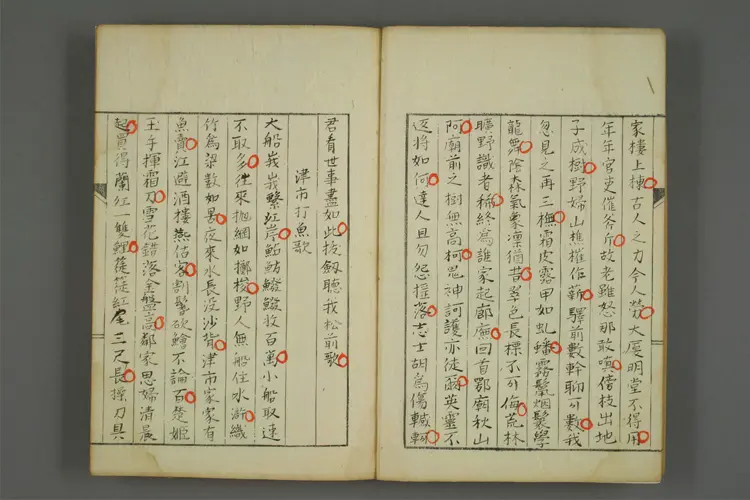 家樓上棟古人之力今人勞大厦明堂不得用
年年官吏催斧斤故老雖怒那敢嗔傍枝出地
子成樹野婦山樵權作薪驛前數幹聊可數我
忽見之再三撫霜皮露甲如虬蟠霧鬣烟鬟學
龍舞陰森氣象凜猶昔翠色長標不可侮荒林
曠野識者稀終為誰家起廊廡回首鄂廟秋山
阿廟前之樹無高柯鬼神訶護亦徒爾英靈不
返將如何達人且勿怨摧落志士胡為傷轗軻
君看世事盡如此抚劍聽我松前歌
津市打魚歌
大船峩峩繫江岸鮎魴鱍鱍收百萬小船取速
不取多往來抛網如擲梭野人無船住水滸織
竹為梁數如罟夜來水長没沙背津市家家有
魚賣江邊酒樓燕估客割鬐砍鱠不論百楚姬
玉手揮霜刀雪花錯落金盤高鄰家思婦清晨
起買得蘭江一雙鯉簁簁紅尾三尺長操刀具